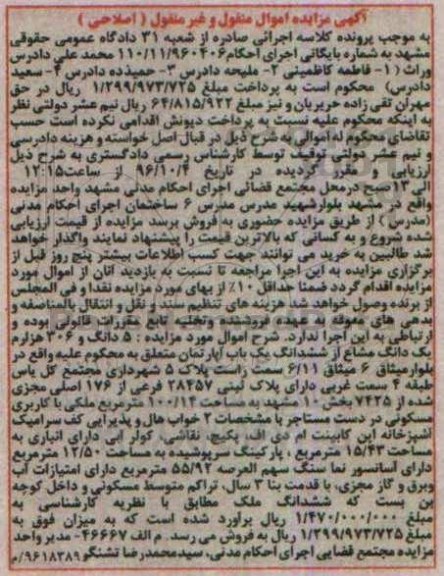 آگهی مزایده اموال منقول و غیر منقول ( اصلاحی )
به موجب پرونده کلاسه اجرائی صادره از شعبه ۳۱ دادگاه عمومی حقوقی
مشهد به شماره بایگانی اجرای احکام ۱۱۰/۱۱/۹۶۰۴۰۶ محمد علی دادرس
وراث (۱- فاطمه کاظمینی ۲- ملیحه دادرس ۳- حمیده دادرس ۴- سعید
دادرس) محکوم است به پرداخت مبلغ ۱/۲۹۹/۹۷۳/۷۲۵ ریال در حق
مهران تقی زاده حریریان و نیز مبلغ ۶۴/۸۱۵/۹۲۲ ریال نیم عشر دولتی نظر
به اینکه محکوم علیه نسبت به پرداخت دیونش اقدامی نکرده است حسب
تقاضای محکوم له اموالی به شرح ذیل در قبال اصل خواسته و هزینه دادرسی
و نیم عشر دولتی توقیف توسط کارشناس رسمی دادگستری به شرح ذیل
ارزیابی و مقرر گردیده در تاریخ ۹۶/۱۰/۴ از ساعت ۱۲:۱۵
الی ۱۳ صبح درمحل مجتمع قضائی اجرای احکام مدنی مشهد واحد مزایده
واقع در مشهد بلوارشهید مدرس مدرس ۶ ساختمان اجرای احکام مدنی
(مدرس) از طریق مزایده حضوری به فروش برسد مزایده از قیمت ارزیابی
شده شروع و به کسانی که بالاترین قیمت را پیشنهاد نمایند واگذار خواهد
شد طالبین به خرید می توانند جهت کسب اطلاعات بیشتر پنج روز قبل از
برگزاری مزایده به این اجرا مراجعه تا نسبت به بازدید آنان از اموال مورد
مزایده اقدام گردد ضمنا حداقل ۱۰٪ از بهای مورد مزایده نقدا و فی المجلس
از برنده وصول خواهد شد هزینه های تنظیم سند و نقل و انتقال بالمناصفه و
بدهی های معوقه به عهده فروشنده وتخلیه تابع مقررات قانونی بوده و
ارتباطی به این اجرا ندارد. شرح اموال مورد مزایده : ۵ دانگ و ۳۰۶ هزارم
یک دانگ مشاع از ششدانگ یک باب آپارتمان متعلق به محکوم علیه واقع در
بلوارمیثاق ۶ میثاق ۶/۱۱ سمت راست پلاک ۵ شهرداری مجتمع گل یاس
طبقه ۴ سمت غربی دارای پلاک ثبتی ۲۸۴۵۷ فرعی از ۱۷۶ اصلی مجزی
شده از ۷۴۲۵ بخش ۱۰ مشهد به مساحت ۱۰۰/۱۴ مترمربع ملکی با کاربری
مسکونی در دست مستاجر با مشخصات ۲ خواب هال و پذیرایی کف سرامیک
آشپزخانه اپن کابینت ام دی اف، پکیج، نقاشی، کولر آبی دارای انباری به
مساحت ۱۵/۴۳ مترمربع ، پارکینگ سرپوشیده به مساحت ۱۲/۵۰ مترمربع
دارای آسانسور نما سنگ سهم العرصه ۵۵/۹۲ مترمربع دارای امتیازات آب
وبرق و گاز مجزی، با قدمت بنا ۳ سال، تراکم متوسط مسکونی و داخل کوچه
بن بست که ششدانگ ملک مطابق با نظریه کارشناسی به
مبلغ ۱/۴۷۰/۰۰۰/۰۰۰ ریال برآورد شده است که به میزان فوق به
مبلغ ۱/۲۹۹/۹۷۳/۷۲۵ ریال به فروش می رسد. م الف ۴۶۶۶۷- مدیر واحد
مزایده مجتمع قضایی اجرای احکام مدنی، سیدمحمدرضا تشنگو ۹۶۱۸۳۸۹/م